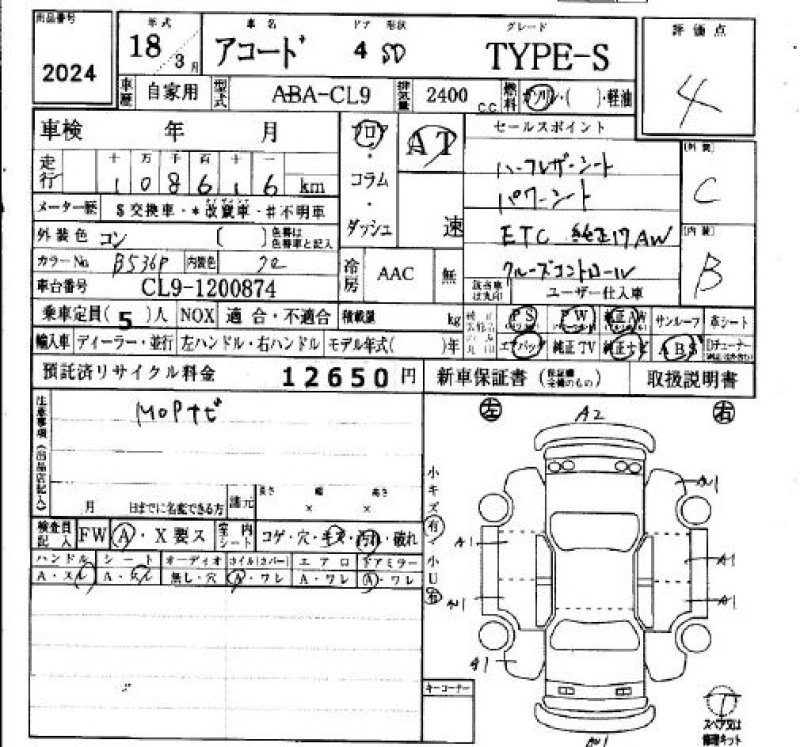 出品番号
2024
年式
18 3月
車名
アコード
ドア 形状
4 SD
グレード
TYPE-S
評価点
4
車歴 自家用
型式 ABA-CL9
排気量 2400 C.C
燃料 ガソリン・( )・軽油
車検 年 月
フロア・コラム・ダッシュ
AT
速
セールスポイント
ハーフレザーシート
パワーシート
ETC 純正17AW
クルーズコントロール
[外装]
C
[内装]
B
走行 十 万 千 百 十 一
108616 km
メーター歴 $交換車・*改竄車・#不明車
外装色 コン ( ) 色替は色替車と記入
カラーNo. B536P 内装色 クロ
冷房 AAC 無
車台番号 CL9-1200874
該当車は丸印 ユーザー仕入車
乗車定員(5)人 NOX 適合・不適合 積載量 kg
PS PW 純正AW サンルーフ 革シート
エアバック 純正TV 純正ナビ ABS
輸入車 ディーラー・並行 左ハンドル・右ハンドル モデル年式( )年
預託済リサイクル料金 12650円
新車保証書 取扱説明書
注意事項(出品店記入)
MOPナビ
月 日までに名変できる方
諸元 長さ 幅 高さ
× ×
検査員記入 FW A・X要ス 室内シート コゲ・穴・キズ・汚れ・破れ
ハンドル シート オーディオ ホイル(カバー) エアロ ドアミラー
A・スレ A・スレ 無し・穴 A・ワレ A・ワレ A・ワレ
小キズ有 小U有
左 右
A2
A1
A1
A1
A1
A1
キーコーナー
スペア又は修理キット